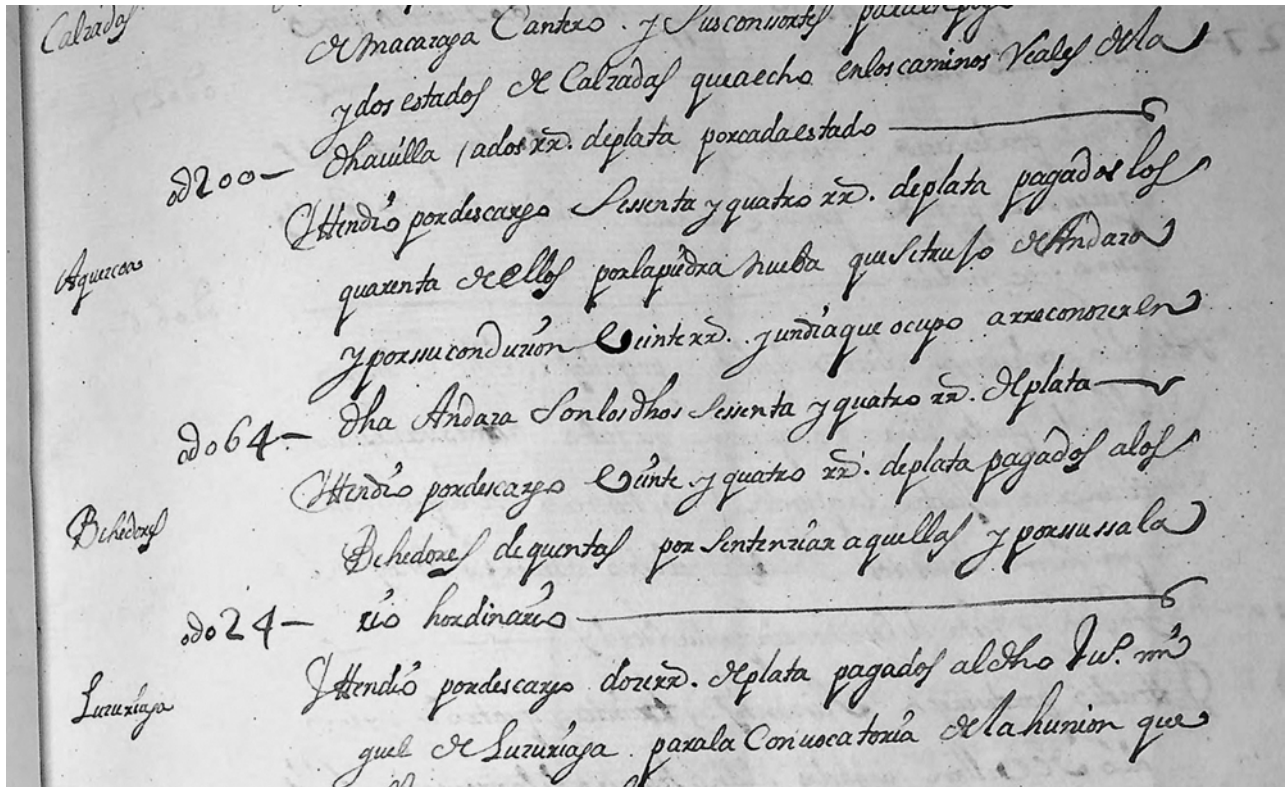 Calzadas
de Macaraga Cantero. y Sus consortes para
y dos estados de Calzadas que a echo en los caminos Reales de la
dha uilla / a dos rrs. de plata por cada estado
od200—
Yttendio por descargo Sessenta y quatro rrs. de plata pagados los
quarenta de ellos por la piedra nueba que se truso de Andara
y por su conduzion Veinte rrs. y un dia que ocupo a rreconozer en
dha Andara Son los dhos Sessenta y quatro rrs. de plata
odo64—
Yttendio por descargo Veinte y quatro rrs. de plata pagados a los
Behedores
Behedores de quentas por Sentenziar aquellas y por su sala
rio hordinario
odo24—
Yttendio por descargo doze rrs. de plata pagados al dho Juo. mi
Luzuriaga
guel de Luzuriaga para la Conuocatoria de la hunion que